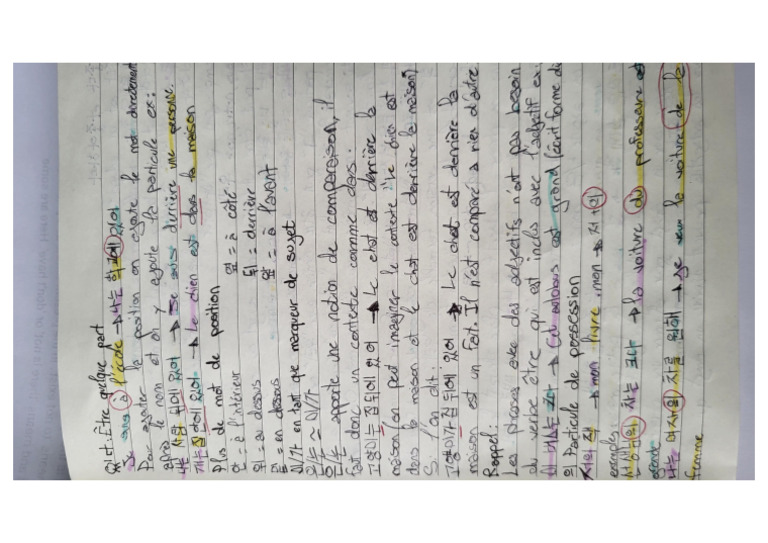 있다: Être quelque part
Je suis à l'école → 나는 학교에 있어
Pour ajouter la position on ajoute le mot directement
après le nom et on y ajoute la particule ex:
나는 사람 뒤에 있어 → Je suis derrière une personne.
개는 집 안에 있어 → Le chien est dans la maison
Plus de mot de position
안 = à l'intérieur 옆 = à côté
위 = au dessus 뒤 = derrière
밑 = en dessous 앞 = à l'avant
이/가 en tant que marqueur de sujet
은/는 ≃ 이/가
은/는 apporte une notion de comparaison, il
faut donc un contexte comme dans:
고양이는 집 뒤에 있어 → Le chat est derrière la
maison (on peut imaginer le contexte: "le chien est
dans la maison et le chat est derrière la maison")
Si l'on dit:
고양이가 집 뒤에 있어 → Le chat est derrière la
maison est un fait. Il n'est comparé à rien d'autre
Rappel:
Les phrases avec des adjectifs n'ont pas besoin
du verbe être qui est inclus avec l'adjectif ex:
버스는 크다 → Un autobus est grand
의 Particule de possession
저의 책 → mon livre, mon → 저의
exemples:
선생님의 차는 크다 → la voiture du professeur est
grande
나는 여자의 차를 원해 → Je veux la voiture de la
femme